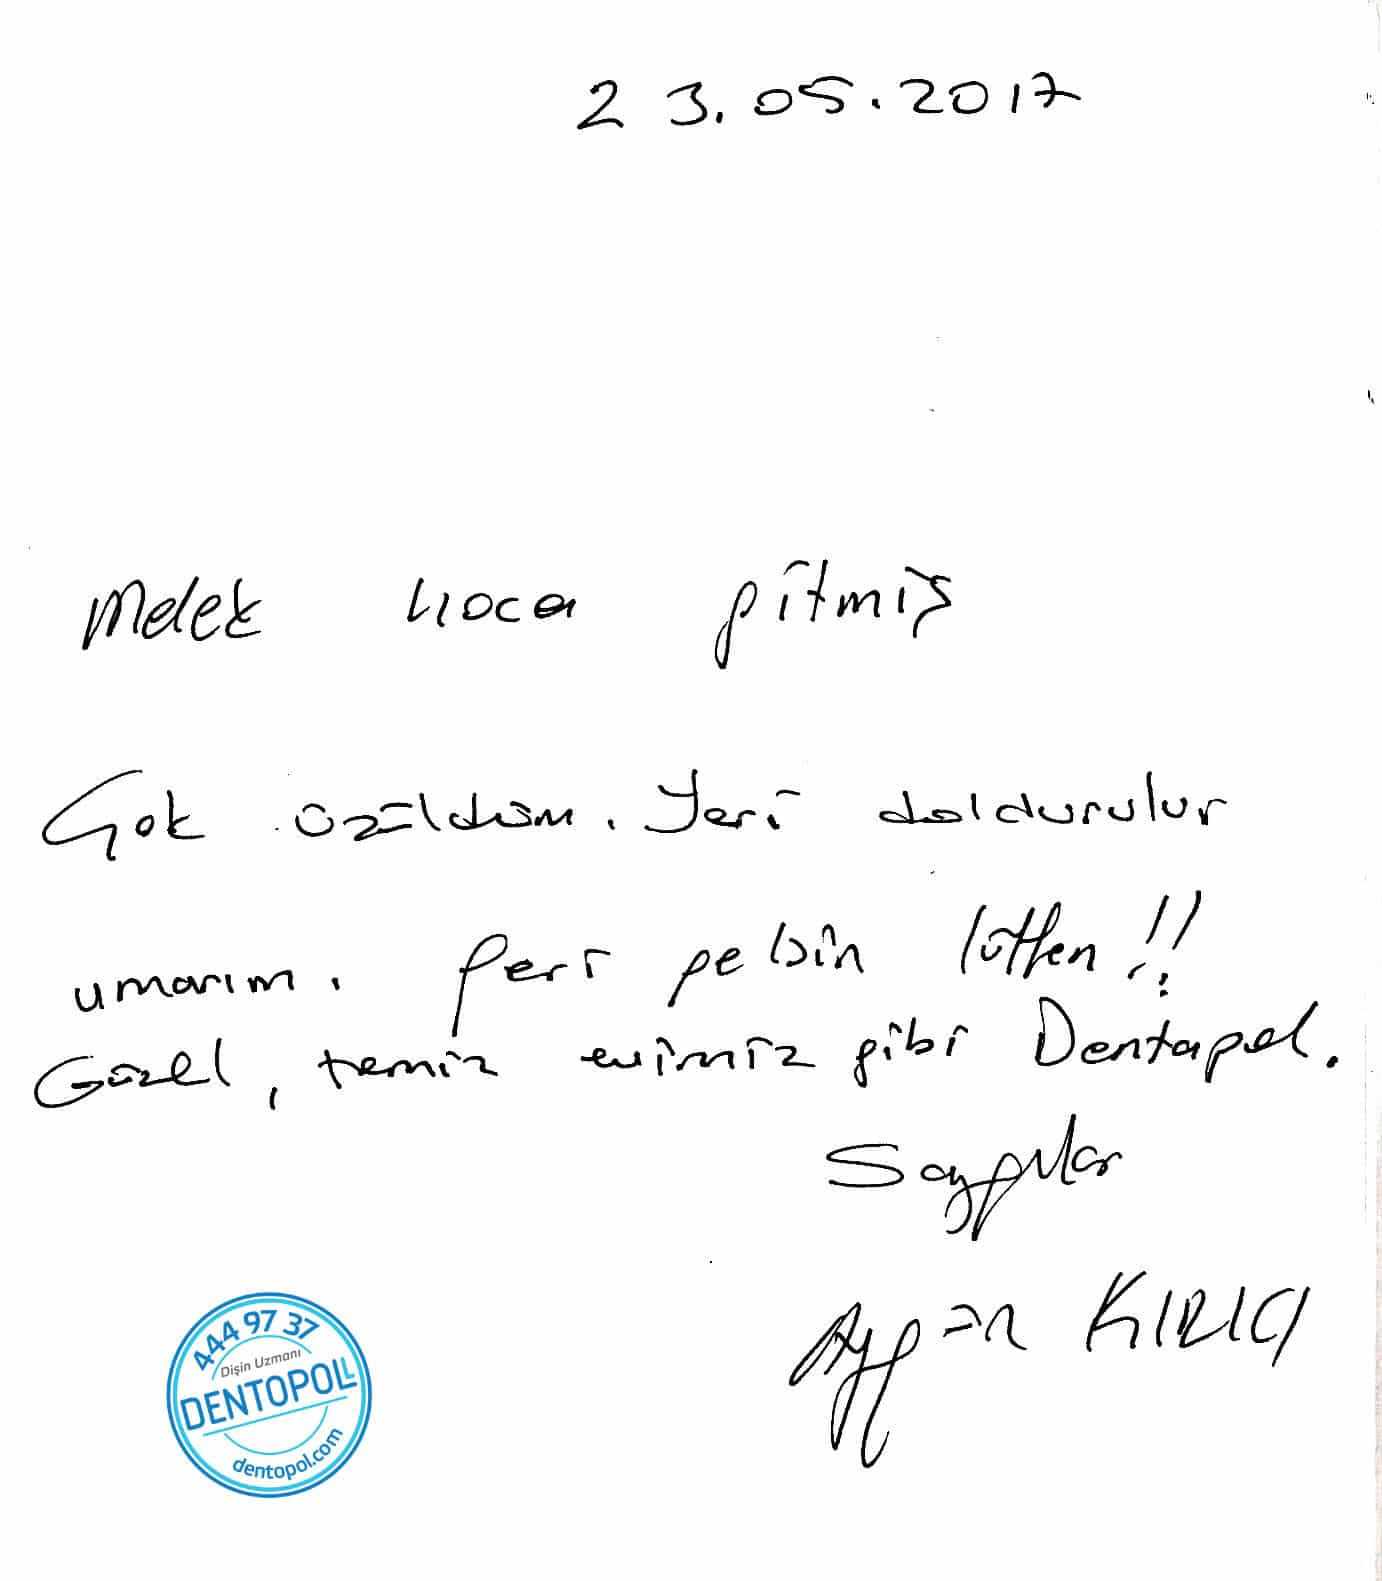 23.05.2017
Melek Hoca gitmiş
Çok üzüldüm. Yeri doldurulur
umarım. Geri gelsin lütfen!!
Güzel, temiz evimiz gibi Dentapol.
Saygılar
Aygün KIRICI
444 97 37
Dişin Uzmanı
DENTOPOL
dentopol.com